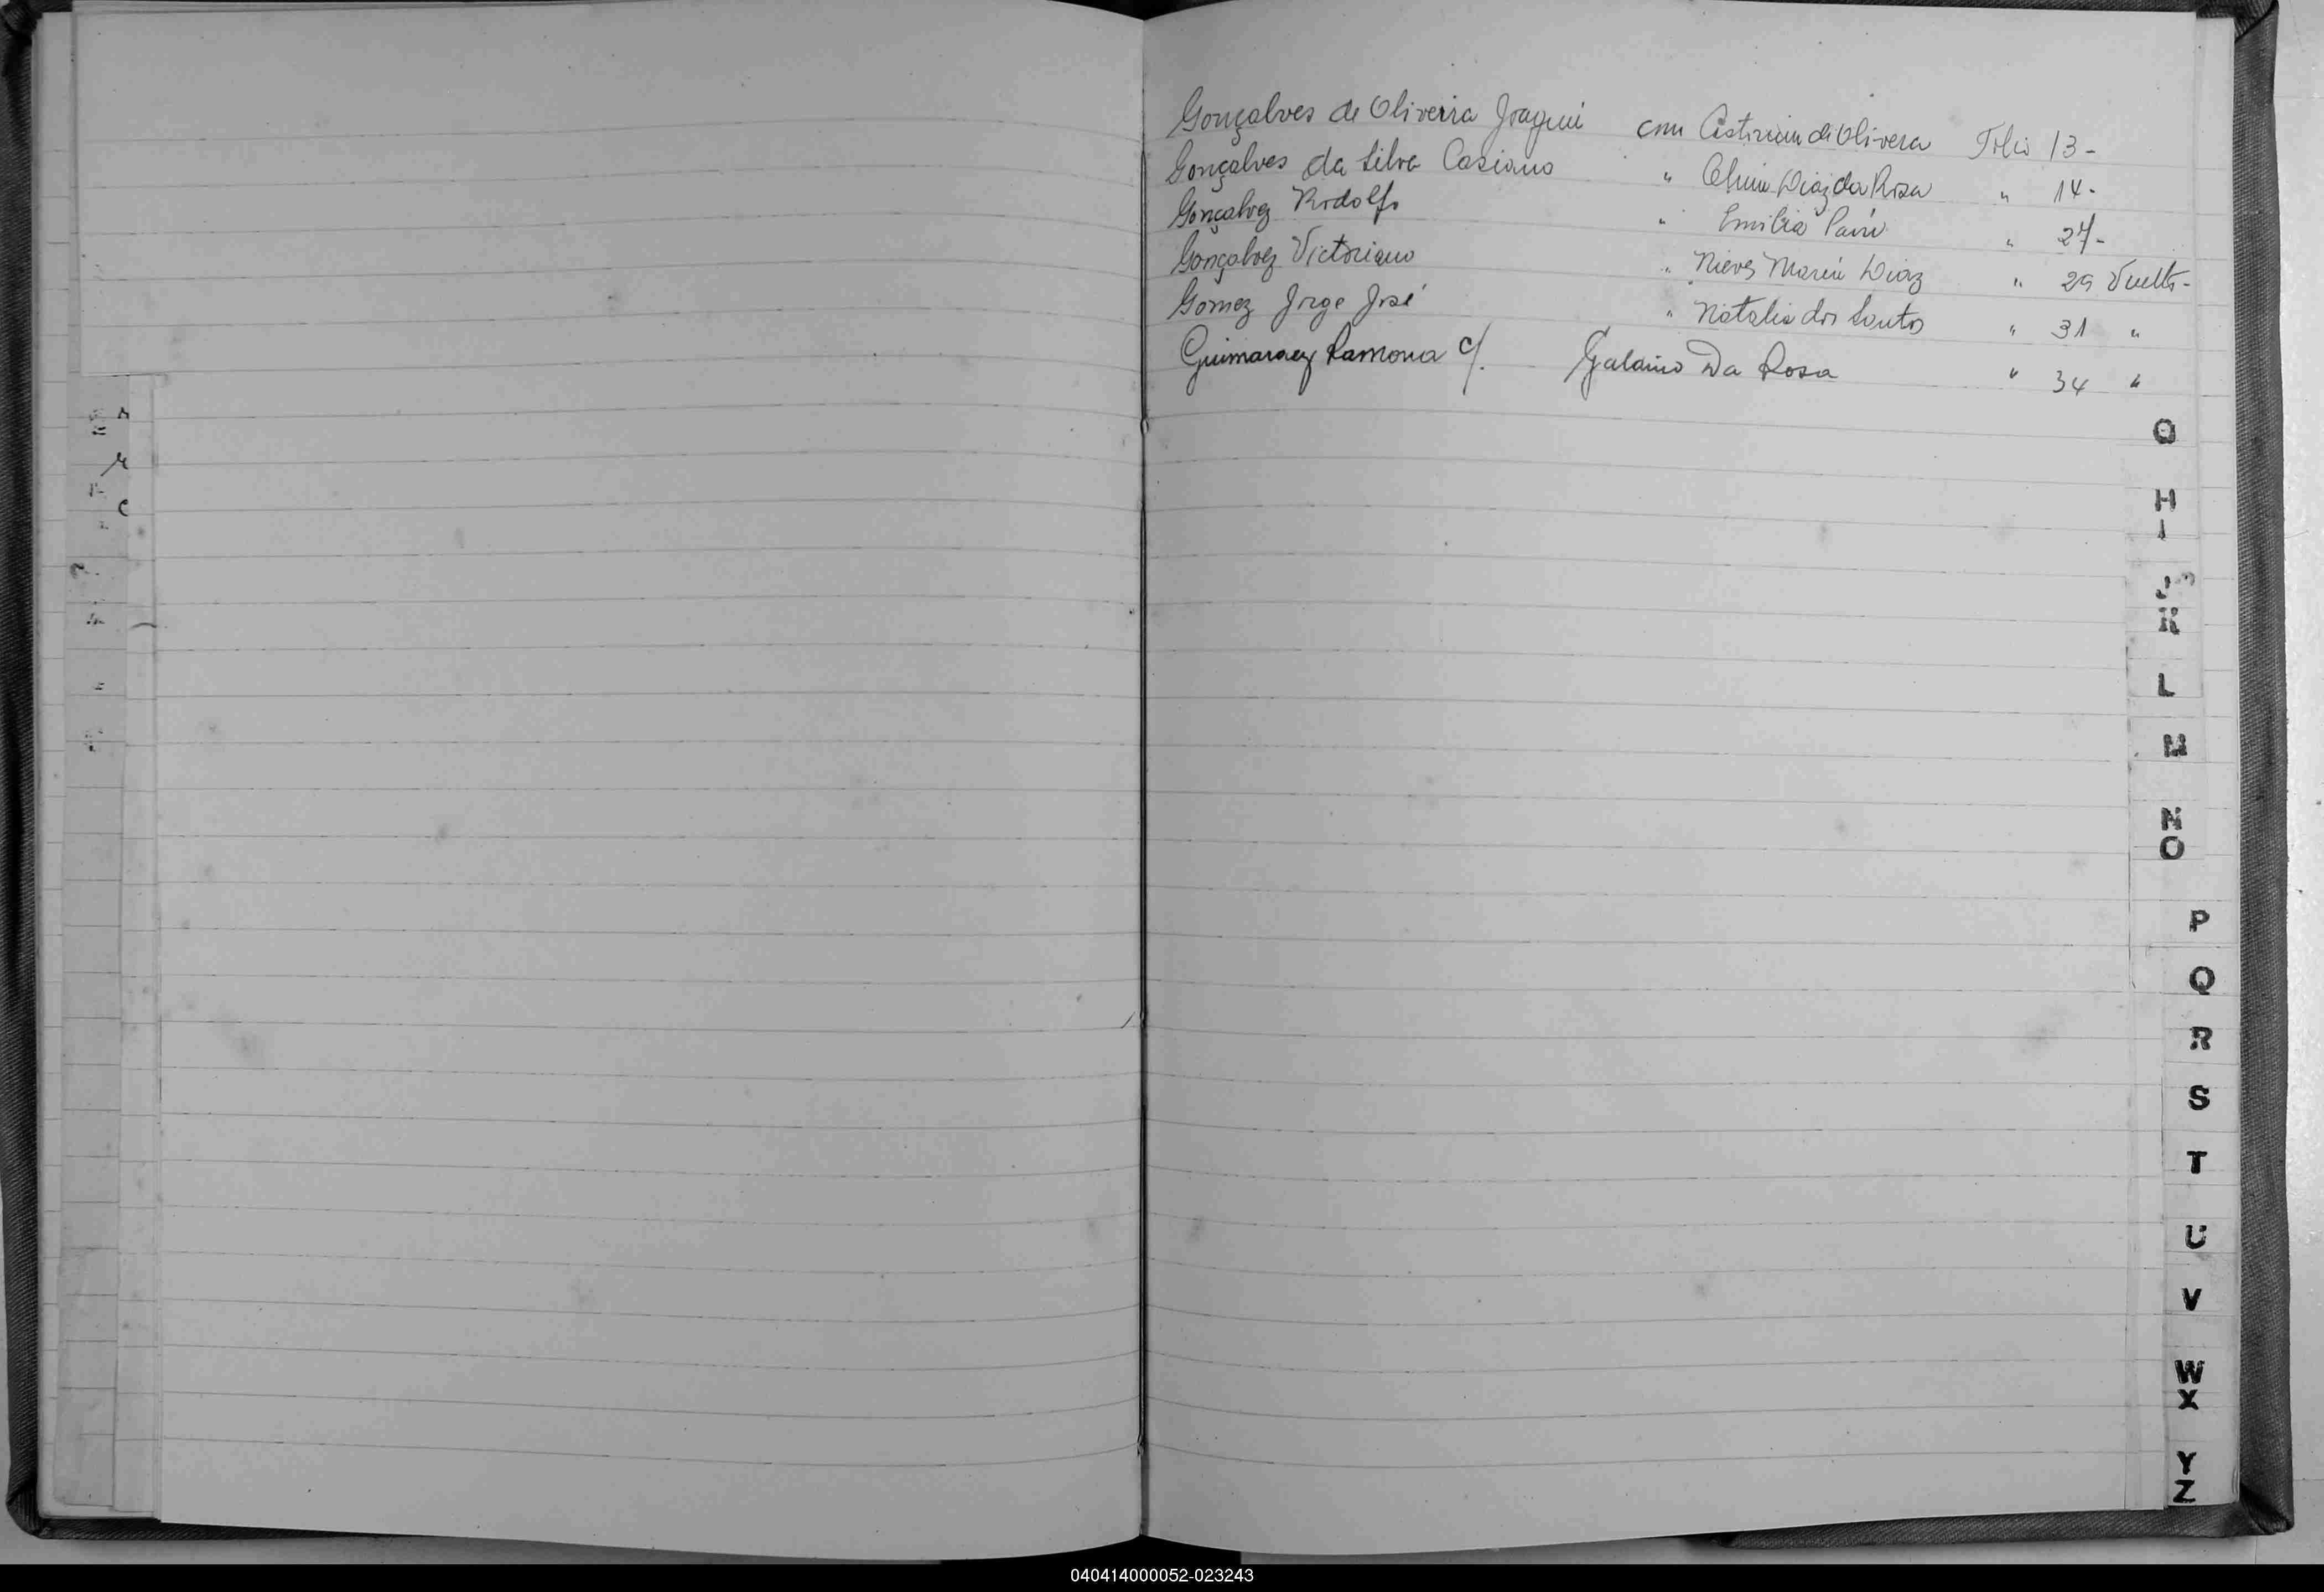 Gonçalves de Oliveira Joaquin con de Olivera Folio 13-
Gonçalves da Silva Casiano " Diaz da Rosa " 14-
Gonçalvez Rodolfo " Emilia " 27-
Gonçalvez Victoriano " Nieves Maria Diaz " 29 Vuelta-
Gomez Jorge José " Natalia dos Santos " 31 "
Guimaraez Ramona c/. Galaino Da Rosa " 34 "
G
H
I
J
K
L
M
N
O
P
Q
R
S
T
U
V
W
X
Y
Z
040414000052-023243